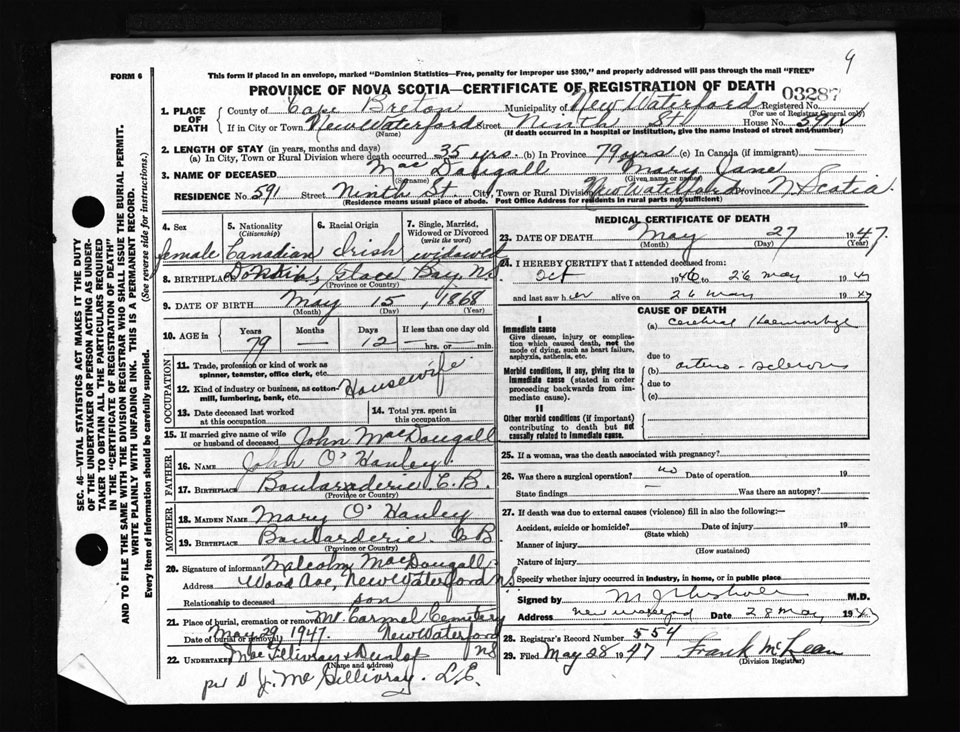 9
FORM 6
This form if placed in an envelope, marked "Dominion Statistics—Free, penalty for improper use $300," and properly addressed will pass through the mail "FREE"
PROVINCE OF NOVA SCOTIA—CERTIFICATE OF REGISTRATION OF DEATH
03287
1. PLACE OF DEATH
County of Cape Breton Municipality of New Waterford Registered No.
(For use of Registrar General only)
If in City or Town New Waterford Street Ninth St House No. 591
(Name) (If death occurred in a hospital or institution, give the name instead of street and number)
2. LENGTH OF STAY (in years, months and days)
(a) In City, Town or Rural Division where death occurred 35 yrs. (b) In Province 79 yrs (c) In Canada (if immigrant) —
3. NAME OF DECEASED MacDougall Mary Jane
(Surname) (Given name or names)
RESIDENCE No 591 Street Ninth St. City, Town or Rural Division New Waterford Province N Scotia
(Residence means usual place of abode. Post Office Address for residents in rural parts not sufficient)
4. Sex
female
5. Nationality
(Citizenship)
Canadian
6. Racial Origin
Irish
7. Single, Married, Widowed or Divorced
(write the word)
widowed
8. BIRTHPLACE Glace Bay, NS
(Province or Country)
9. DATE OF BIRTH May 15, 1868
(Month) (Day) (Year)
10. AGE in Years Months Days If less than one day old
79 — 12 — hrs. or — min.
OCCUPATION
11. Trade, profession or kind of work as spinner, teamster, office clerk, etc.
12. Kind of industry or business, as cotton-mill, lumbering, bank, etc.
Housewife
13. Date deceased last worked at this occupation
14. Total yrs. spent in this occupation
15. If married give name of wife or husband of deceased John MacDougall
FATHER
16. NAME John O'Hanley
17. BIRTHPLACE Boularderie C.B.
(Province or Country)
MOTHER
18. MAIDEN NAME Mary O'Hanley
19. BIRTHPLACE Boularderie C B.
(Province or Country)
20. Signature of informant Malcolm MacDougall
Address Wood Ave, New Waterford NS
Relationship to deceased son
21. Place of burial, cremation or removal Mt. Carmel Cemetery
Date of burial or removal May 29, 1947. New Waterford
22. Undertaker MacGillivray & Dunlop NS
(Name and address)
per D J. McGillivray. L.E.
MEDICAL CERTIFICATE OF DEATH
23. DATE OF DEATH May 27 1947.
(Month) (Day) (Year)
24. I HEREBY CERTIFY that I attended deceased from:
Oct 1946 to 26 May 1947
and last saw her alive on 26 May 1947
CAUSE OF DEATH
I
Immediate cause
Give disease, injury or complication which caused death, not the mode of dying, such as heart failure, asphyxia, asthenia, etc.
(a) Cerebral Haemorrhage
due to
Morbid conditions, if any, giving rise to immediate cause (stated in order proceeding backwards from immediate cause).
(b) arterio-sclerosis
due to
(c)
II
Other morbid conditions (if important) contributing to death but not causally related to immediate cause.
25. If a woman, was the death associated with pregnancy?
26. Was there a surgical operation? no Date of operation 19
State findings — Was there an autopsy?
27. If death was due to external causes (violence) fill in also the following:—
Accident, suicide or homicide? Date of injury 19
(State which)
Manner of injury
(How sustained)
Nature of injury
Specify whether injury occurred in industry, in home, or in public place
Signed by M.D.
Address New Waterford Date 28 May 1947
28. Registrar's Record Number 554
29. Filed May 28 1947 Frank McLean
(Division Registrar)
SEC. 46—VITAL STATISTICS ACT MAKES IT THE DUTY
OF THE UNDERTAKER OR PERSON ACTING AS UNDERTAKER
TO OBTAIN ALL THE PARTICULARS REQUIRED
IN THE "CERTIFICATE OF REGISTRATION OF DEATH"
AND TO FILE THE SAME WITH THE DIVISION REGISTRAR WHO SHALL ISSUE THE BURIAL PERMIT.
WRITE PLAINLY WITH UNFADING INK. THIS IS A PERMANENT RECORD.
Every item of information should be carefully supplied. (See reverse side for instructions.)